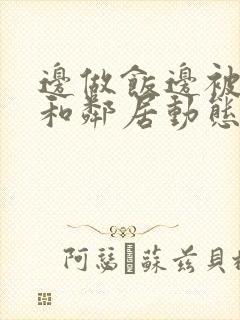 邊做飯邊被
和鄰居動態
阿瑟 蘇茲貝